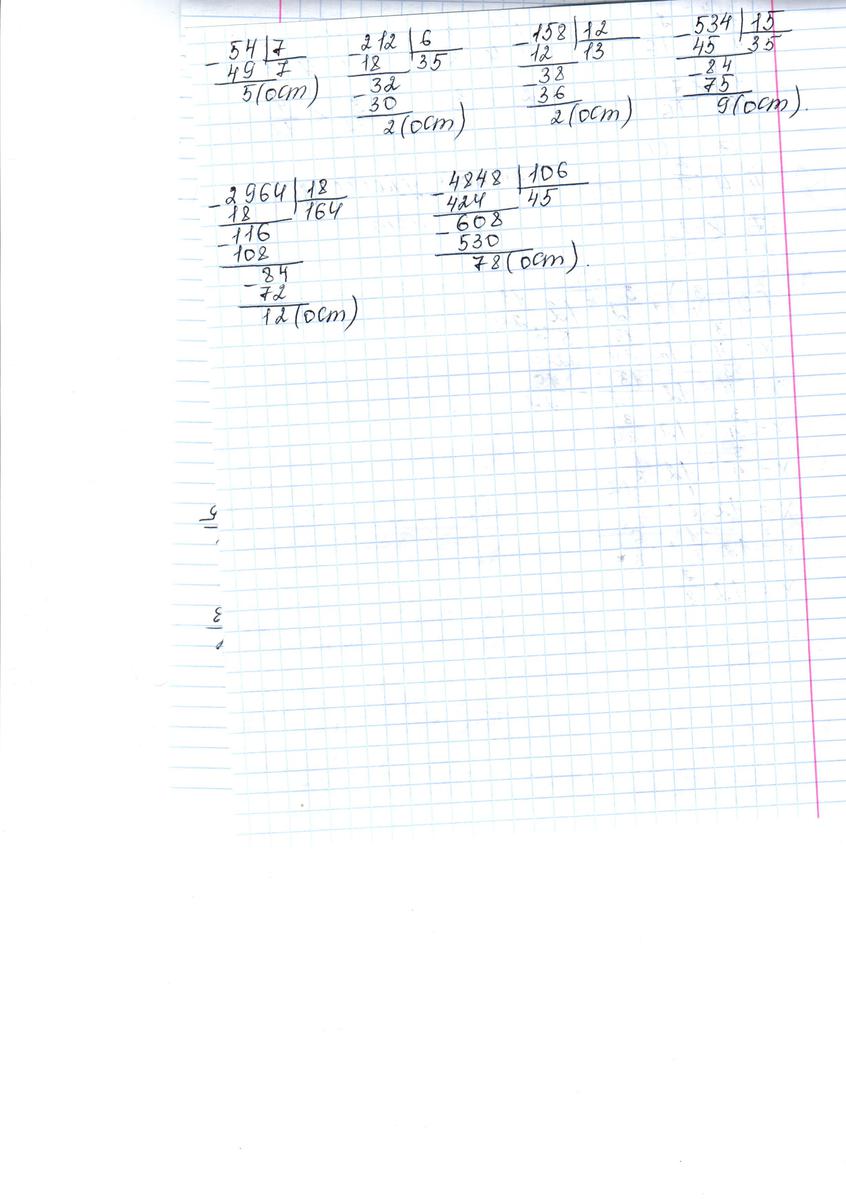 - 54 7
49 7
5 (ост)
- 212 6
18 35
- 32
30
2 (ост)
- 158 12
12 13
- 38
36
2 (ост)
- 534 15
45 35
- 84
75
9 (ост).
- 2964 18
18 164
- 116
108
- 84
72
12 (ост)
- 4848 106
424 45
- 608
530
78 (ост).
5
3